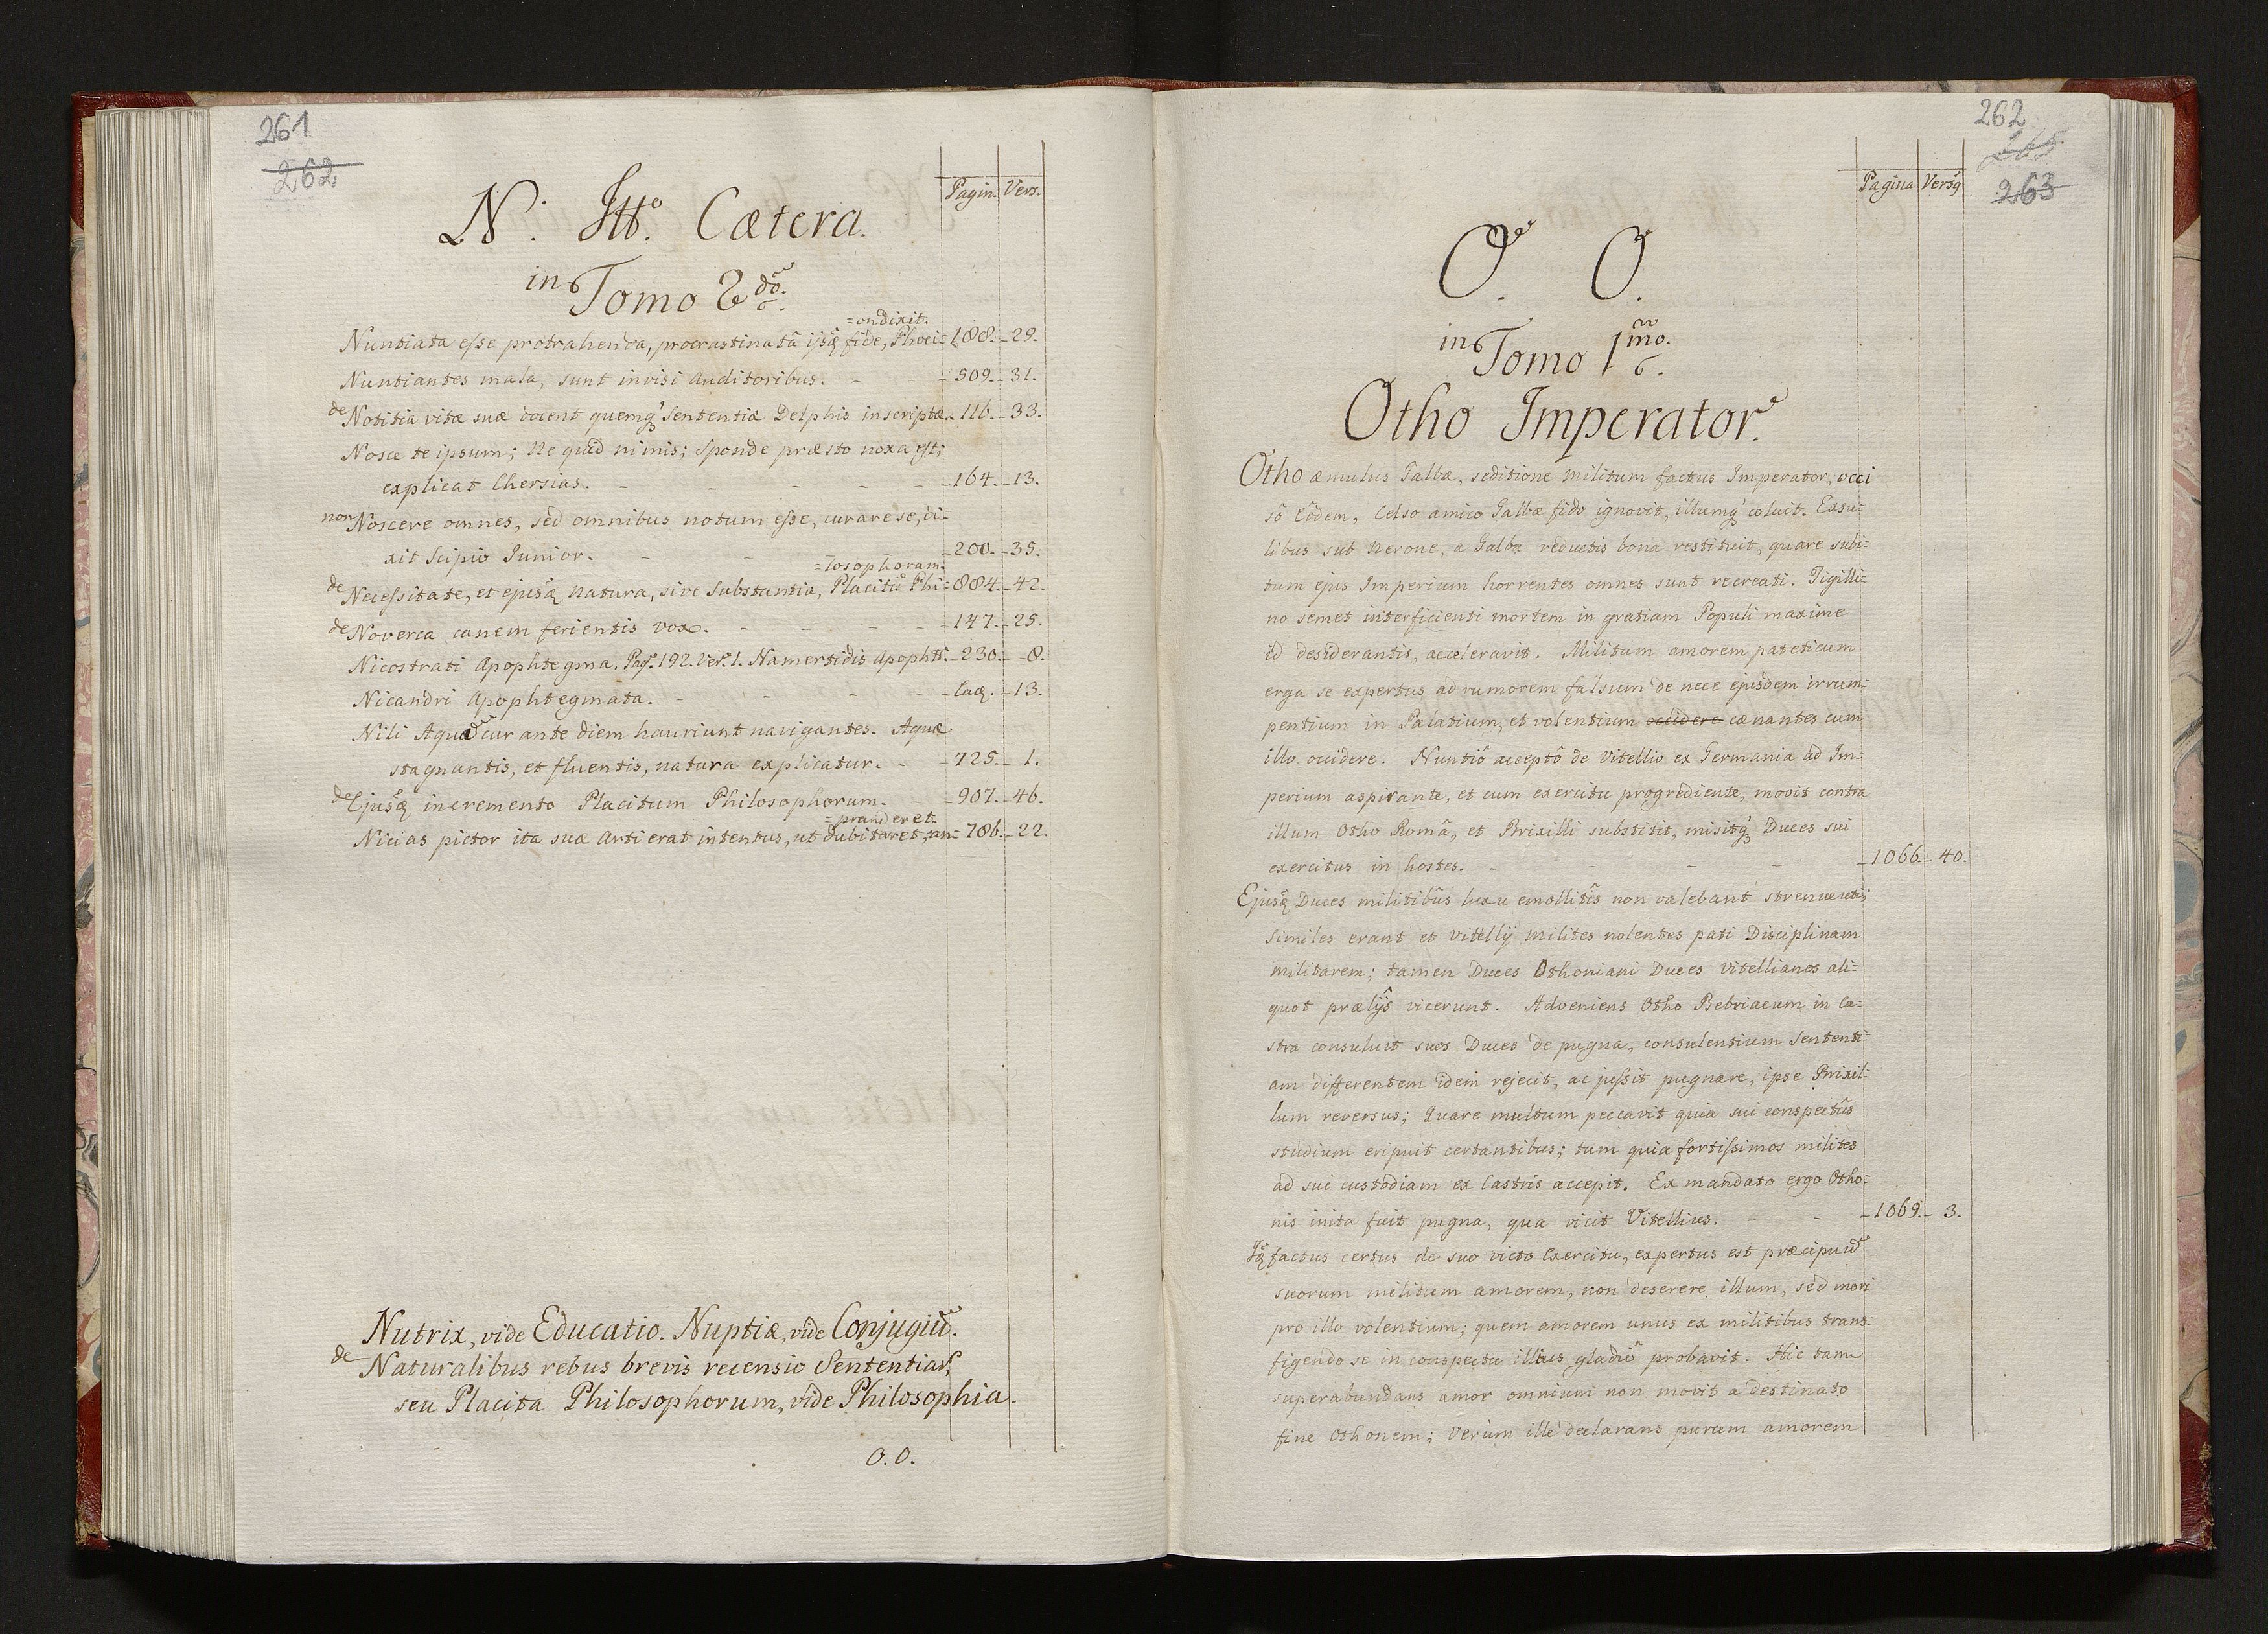 261
262
Pagin. Vers.
N. Itt.º Cætera.
in Tomo 2dõ.
=ondixit.
Nuntiata eſse protrahenda, procrastinatã ijsq fide, Phoci= 188. 29.
Nuntiantes mala, sunt invisi Auditoribus. - 509. 31.
de Notitia vitæ suæ docent quemq Sententiæ Delphis inscriptæ. 116. 33.
Nosce te ipsum; Ne quid nimis; Sponde præsto noxa est;
explicat Chersias. - - - - - 164. 13.
non Noscere omnes, sed omnibus notum eſse, curare se, di=
xit Scipio Junior. - - - - 200. 35.
=losophorum.
de Neceſsitate, et ejusq natura, sive Substantia, Placitũ Phi= 884. 42.
de Noverca canem ferientis vox. - - - 147. 25.
Nicostrati Apophtegma. Pag. 192. Ver. 1. Namertidis Apophtẽ. 230. 8.
Nicandri Apophtegmata. - - - - Eaq. 13.
Nili Aquã cur ante diem hauriunt navigantes. Aquæ
stagnantis, et fluentis, natura explicatur. - 725. 1.
de Ejusq incremento Placitum Philosophorum. - 907. 46.
=pranderet.
Nicias pictor ita suæ Arti erat intentus, ut dubitaret, an= 786. 22.
Nutrix, vide Educatio. Nuptiæ, vide Conjugiũ.
de Naturalibus rebus brevis recensio Sententiar,
seu Placita Philosophorum, vide Philosophia.
O. O.
262
263
Pagina Versq
O. O.
in Tomo 1mõ.
Otho Imperator.
Otho æmulus Galbæ, seditione militum factus Imperator, occi
sô eôdem, Celso amico Galbæ fido ignovit, illumq coluit. Exsu=
libus sub Nerone, a Galba reductis bona restituit, quare subi=
tum ejus Imperium horrentes omnes sunt recreati. Tigilli=
no semet interficienti mortem in gratiam Populi maxime
id desiderantis, acceleravit. Militum amorem pateticum
erga se expertus ad rumorem falsum de nece ejusdem irrum=
pentium in Palatium, et volentium occidere cænantes cum
illo occidere. Nuntiô acceptô de Vitellio ex Germania ad Im=
perium aspirante, et cum exercitu progrediente, movit contra
illum Otho Româ, et Brixilli substitit, misitq Duces sui
exercitus in hostes. - - - - 1066. 40.
Ejusq Duces militibûs luxu emollitîs non valebant strenue uti;
similes erant et Vitellij milites nolentes pati Disciplinam
militarem; tamen Duces Othoniani Duces Vitellianos ali=
quot prælijs vicerunt. Adveniens Otho Bebriacum in Ca=
stra consuluit suos Duces de pugna, consulentium Sententi=
am differentem idem rejecit, ac juſsit pugnare, ipse Brixil=
lum reversus; Quare multum peccavit quia sui conspectûs
studium eripuit certantibus; tum quia fortiſsimos milites
ad sui custodiam ex Castris accepit. Ex mandato ergo Otho=
nis inita fuit pugna, qua vicit Vitellius. - - 1069. 3.
Iq factus certus de suo victo Exercitu, expertus est præcipuũ
suorum militum amorem, non deserere illum, sed mori
pro illo volentium; quem amorem unus ex militibus trans=
figendo se in conspectu illius gladiô probavit. Hic tam
superabundans amor omnium non movit a destinato
fine Othonem; Verùm ille declarans purum amorem